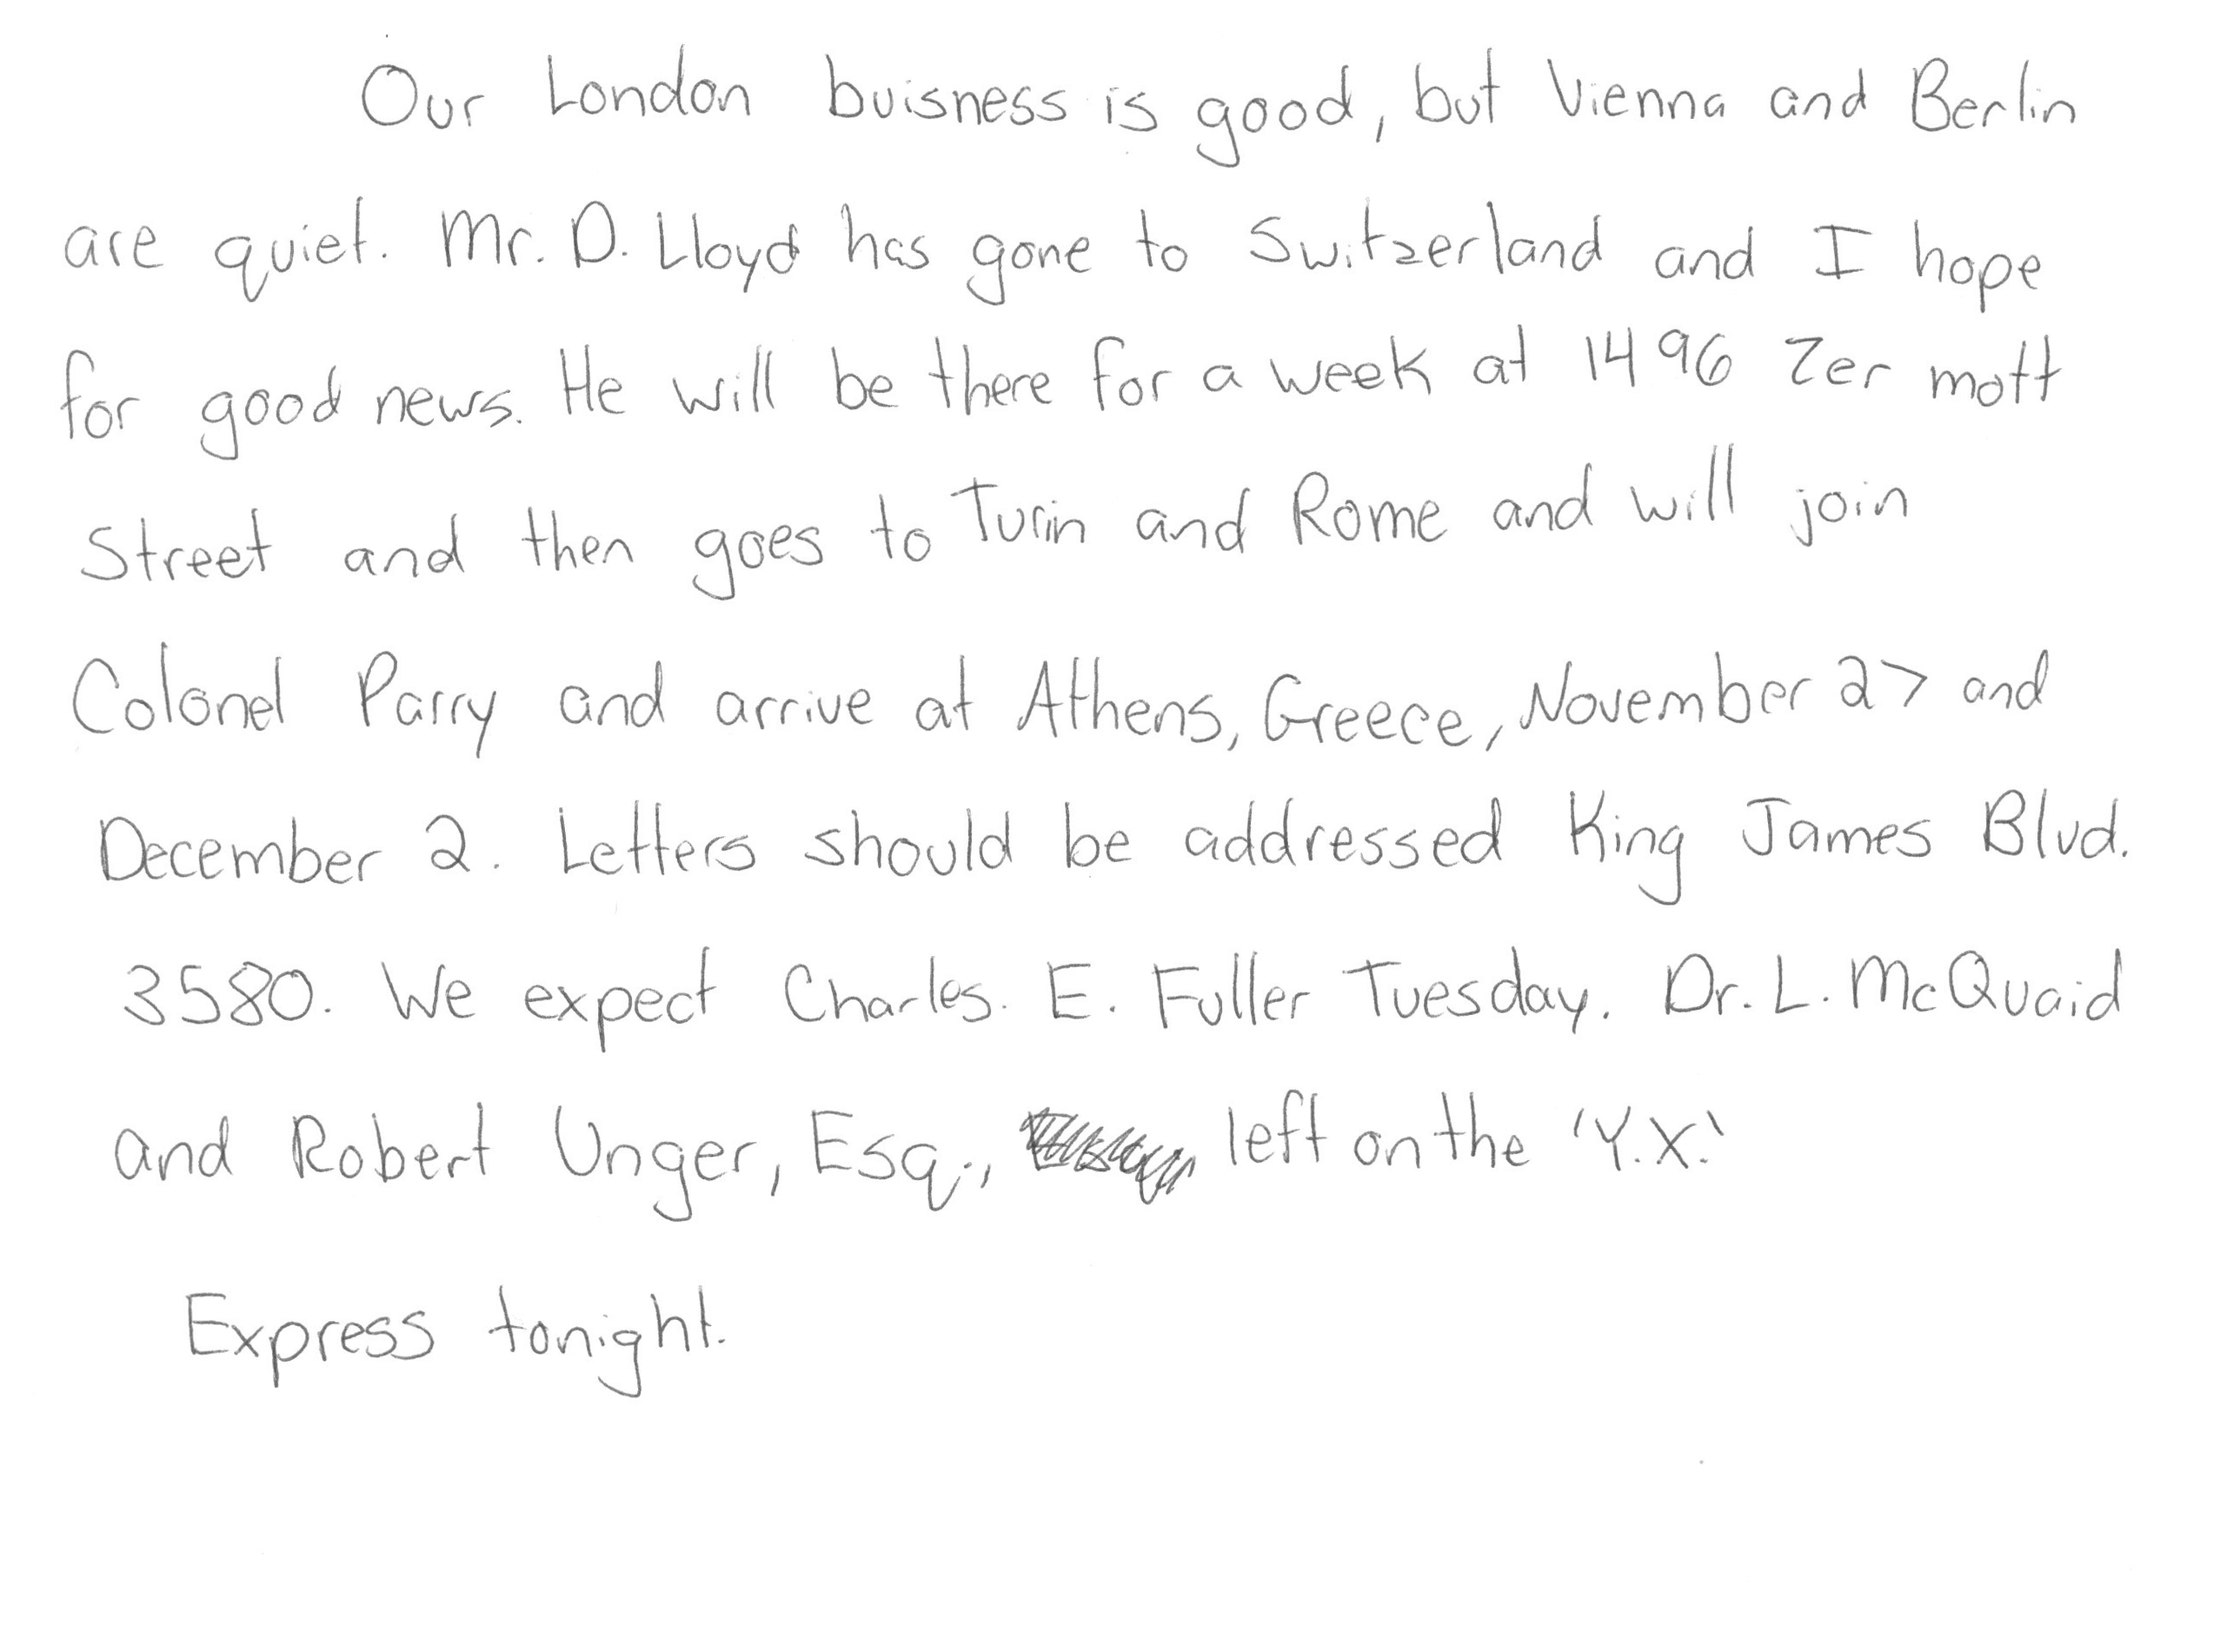 Our London buisness is good, but Vienna and Berlin
are quiet. Mr. D. Lloyd has gone to Switzerland and I hope
for good news. He will be there for a week at 1496 Zer mott
Street and then goes to Turin and Rome and will join
Colonel Parry and arrive at Athens, Greece, November 27 and
December 2. Letters should be addressed King James Blvd.
3580. We expect Charles. E. Fuller Tuesday. Dr. L. McQuaid
and Robert Unger, Esq., left on the 'Y.X.'
Express tonight.